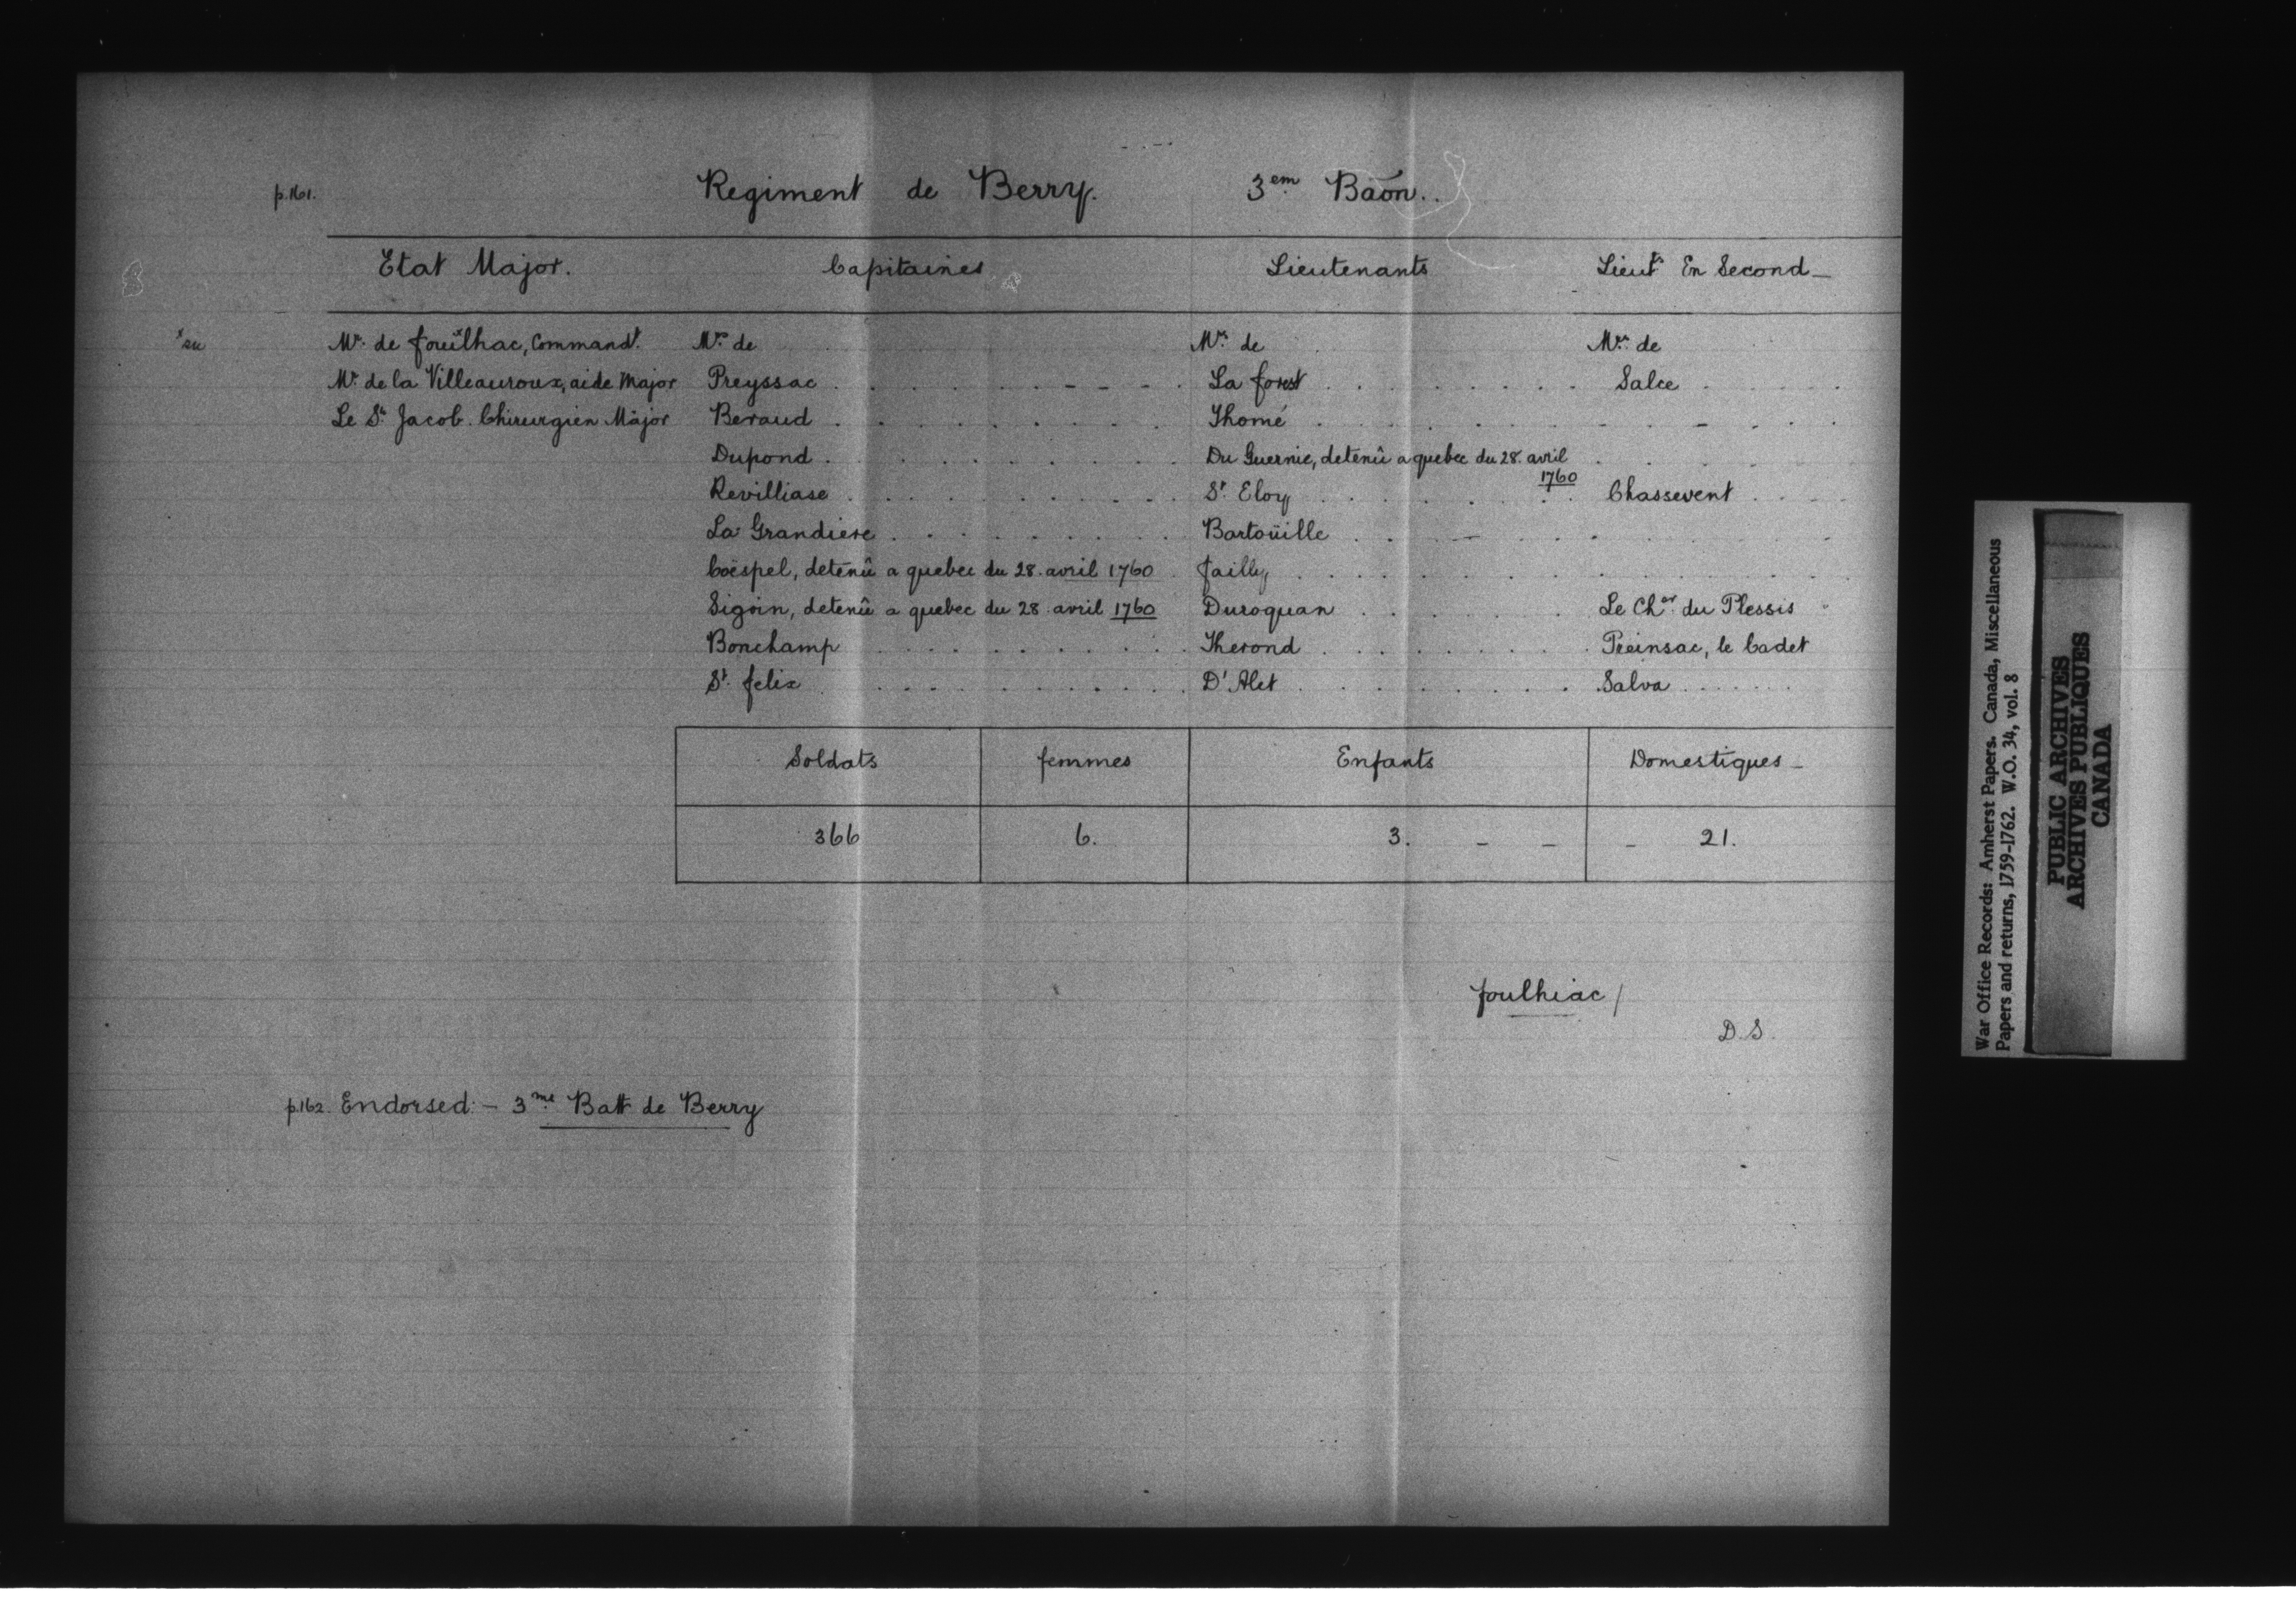 p.161. Regiment de Berry. 3em Baōn..
Etat Major. Capitaines Lieutenants Lieuts En Second_
x su Mr. de fouïlhac, Commandt. Mrs. de Mrs. de Mrs. de
Mr. de la Villeauroux, aide Major Preyssac La forest Salce
Le Sr. Jacob. Chirurgien Major Beraud Thomé
Dupond Du Guernic, detenû a quebec du 28. avril 1760
Revilliase St. Eloy Chassevent
La Grandiere Bartoüille
Coëspel, detenû a quebec du 28. avril 1760 Jailly
Sigoin, detenû a quebec du 28. avril 1760 Duroquan Le Cher. du Plessis
Bonchamp Therond Preinsac, le Cadet
St. felix D'Alet Salva
Soldats femmes Enfants Domestiques_
366 6. 3. - - - 21.
foulhiac /
D.S.
p.162. Endorsed:- 3me. Batt de Berry
War Office Records: Amherst Papers. Canada, Miscellaneous
Papers and returns, 1759-1762. W.O. 34, vol. 8
PUBLIC ARCHIVES
ARCHIVES PUBLIQUES
CANADA